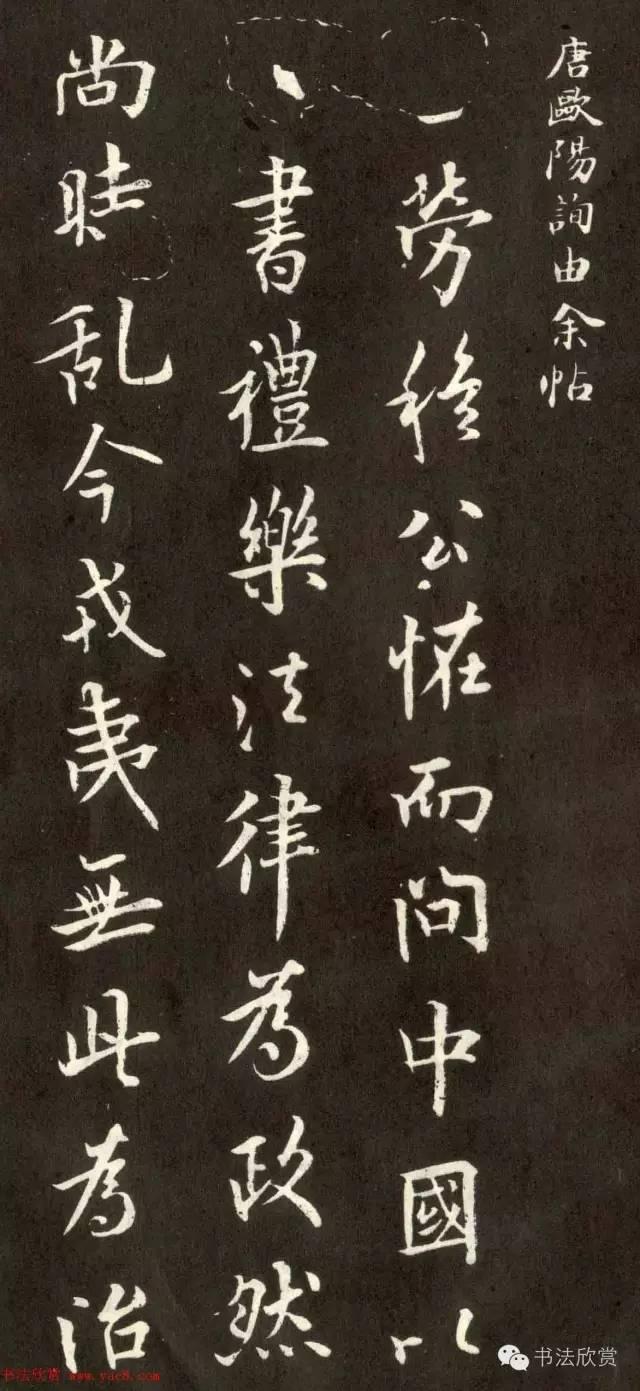 唐歐陽詢由余帖
劳穆公怪而问中國以
書禮樂法律為政然
尚時乱今戎夷無此為治
书法欣赏
书法欣赏 www.yac8.com